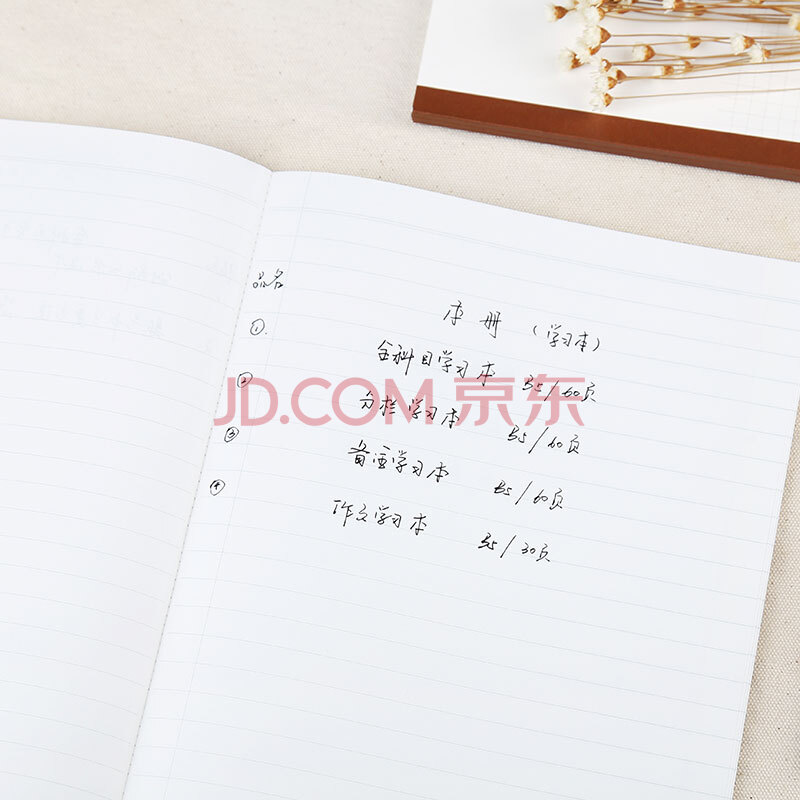 品名
本册（学习本）
① 全科目学习本 B5/60页
② 分栏学习本 B5/60页
③ 备查学习本 B5/60页
④ 作文学习本 B5/30页
JD.COM 京东